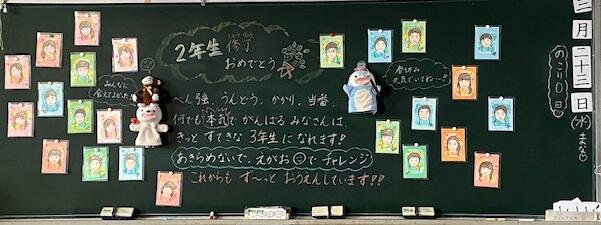 2年生 修了
しゅうりょう
おめでとう
みんなに
会えてよかった
春休み
元気でいてね
べん強、うんどう、かかり、当番、
何でも本気で がんばる みなさんは
きっと すてきな 3年生 に なれます!
あきらめないで、えがお で チャレンジ
これからも ず〜っと おうえんしています!!
三月二十三日(水)
のこり0日